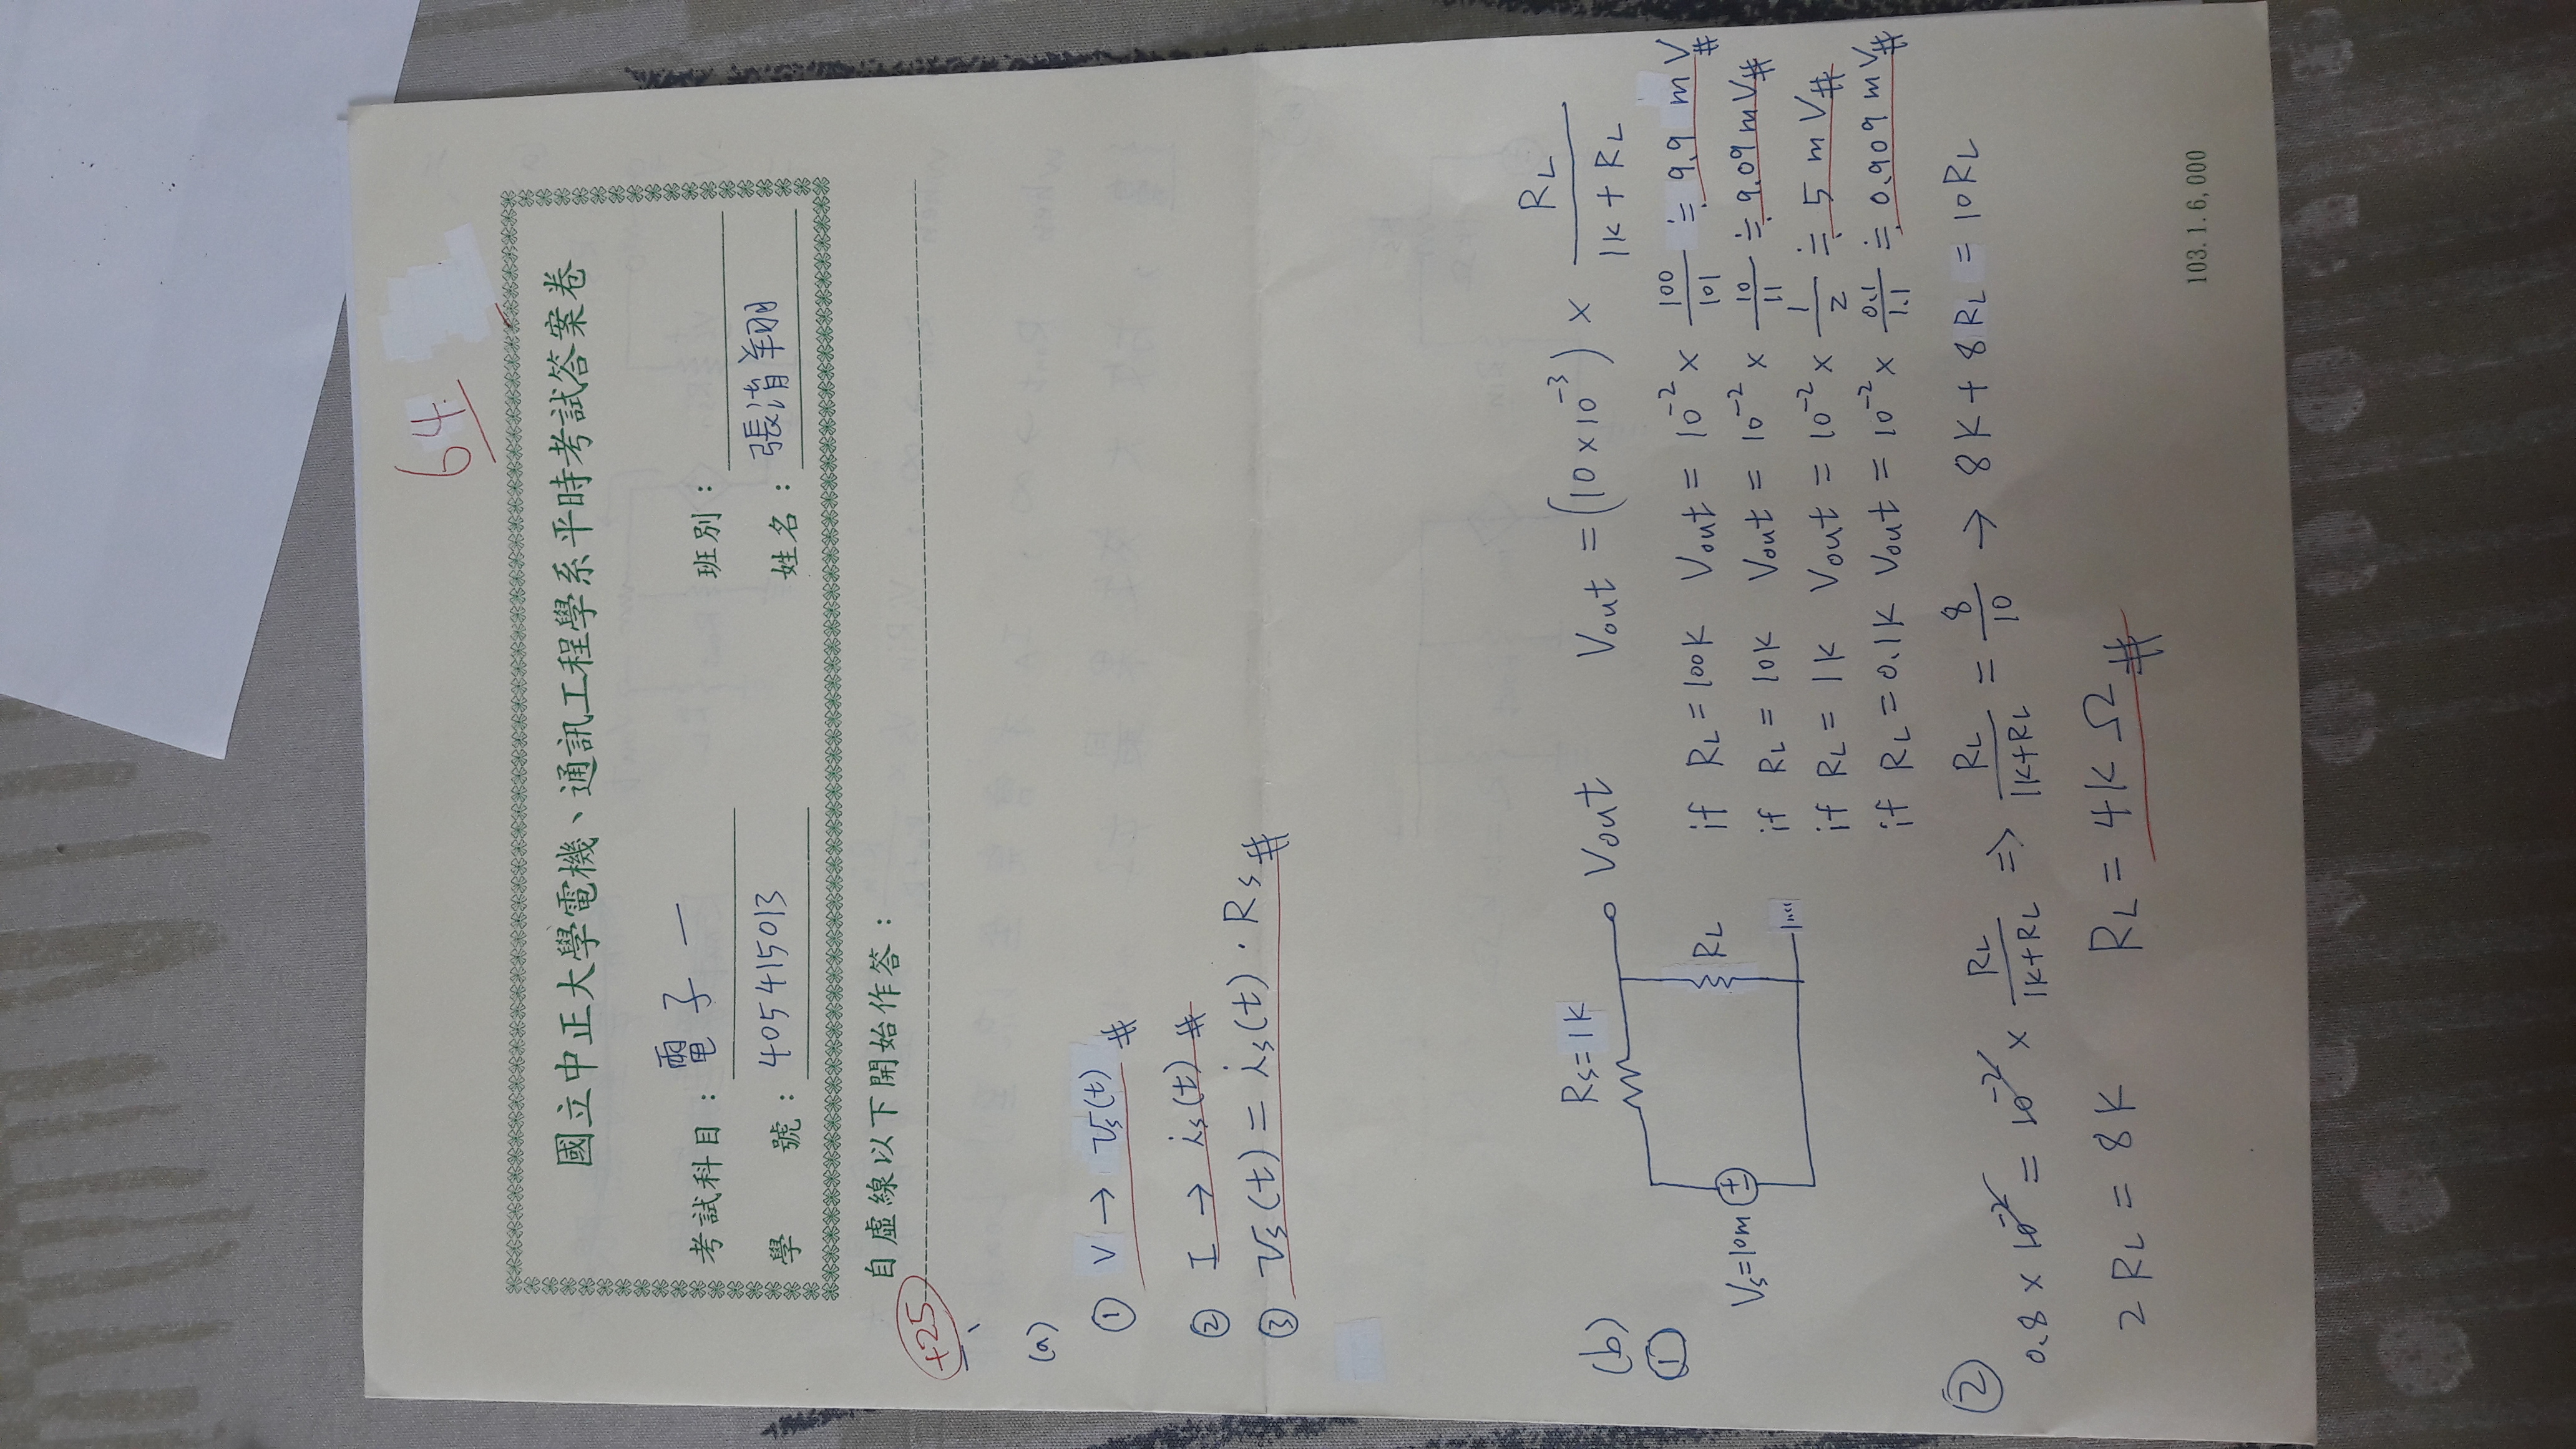 64.
國立中正大學電機、通訊工程學系平時考試答案卷
考試科目：電子一 班別：
學 號：405415013 姓名：張清翔
自虛線以下開始作答：
+25
一、
(a)
① V → vs(t) #
② I → is(t) #
③ vs(t) = is(t) · Rs #
(b)
①
Rs=1K
Vout
Vs=10m
RL
Vout = (10×10⁻³) × RL/(1K + RL)
if RL = 100K Vout = 10⁻² × 100/101 ≒ 9.9 mV #
if RL = 10K Vout = 10⁻² × 10/11 ≒ 9.09 mV #
if RL = 1K Vout = 10⁻² × 1/2 ≒ 5 mV #
if RL = 0.1K Vout = 10⁻² × 0.1/1.1 ≒ 0.909 mV #
②
0.8 × 10⁻² = 10⁻² × RL/(1K+RL) ⇒ RL/(1K+RL) = 8/10 → 8K + 8RL = 10RL
2RL = 8K RL = 4KΩ #
103.1.6,000